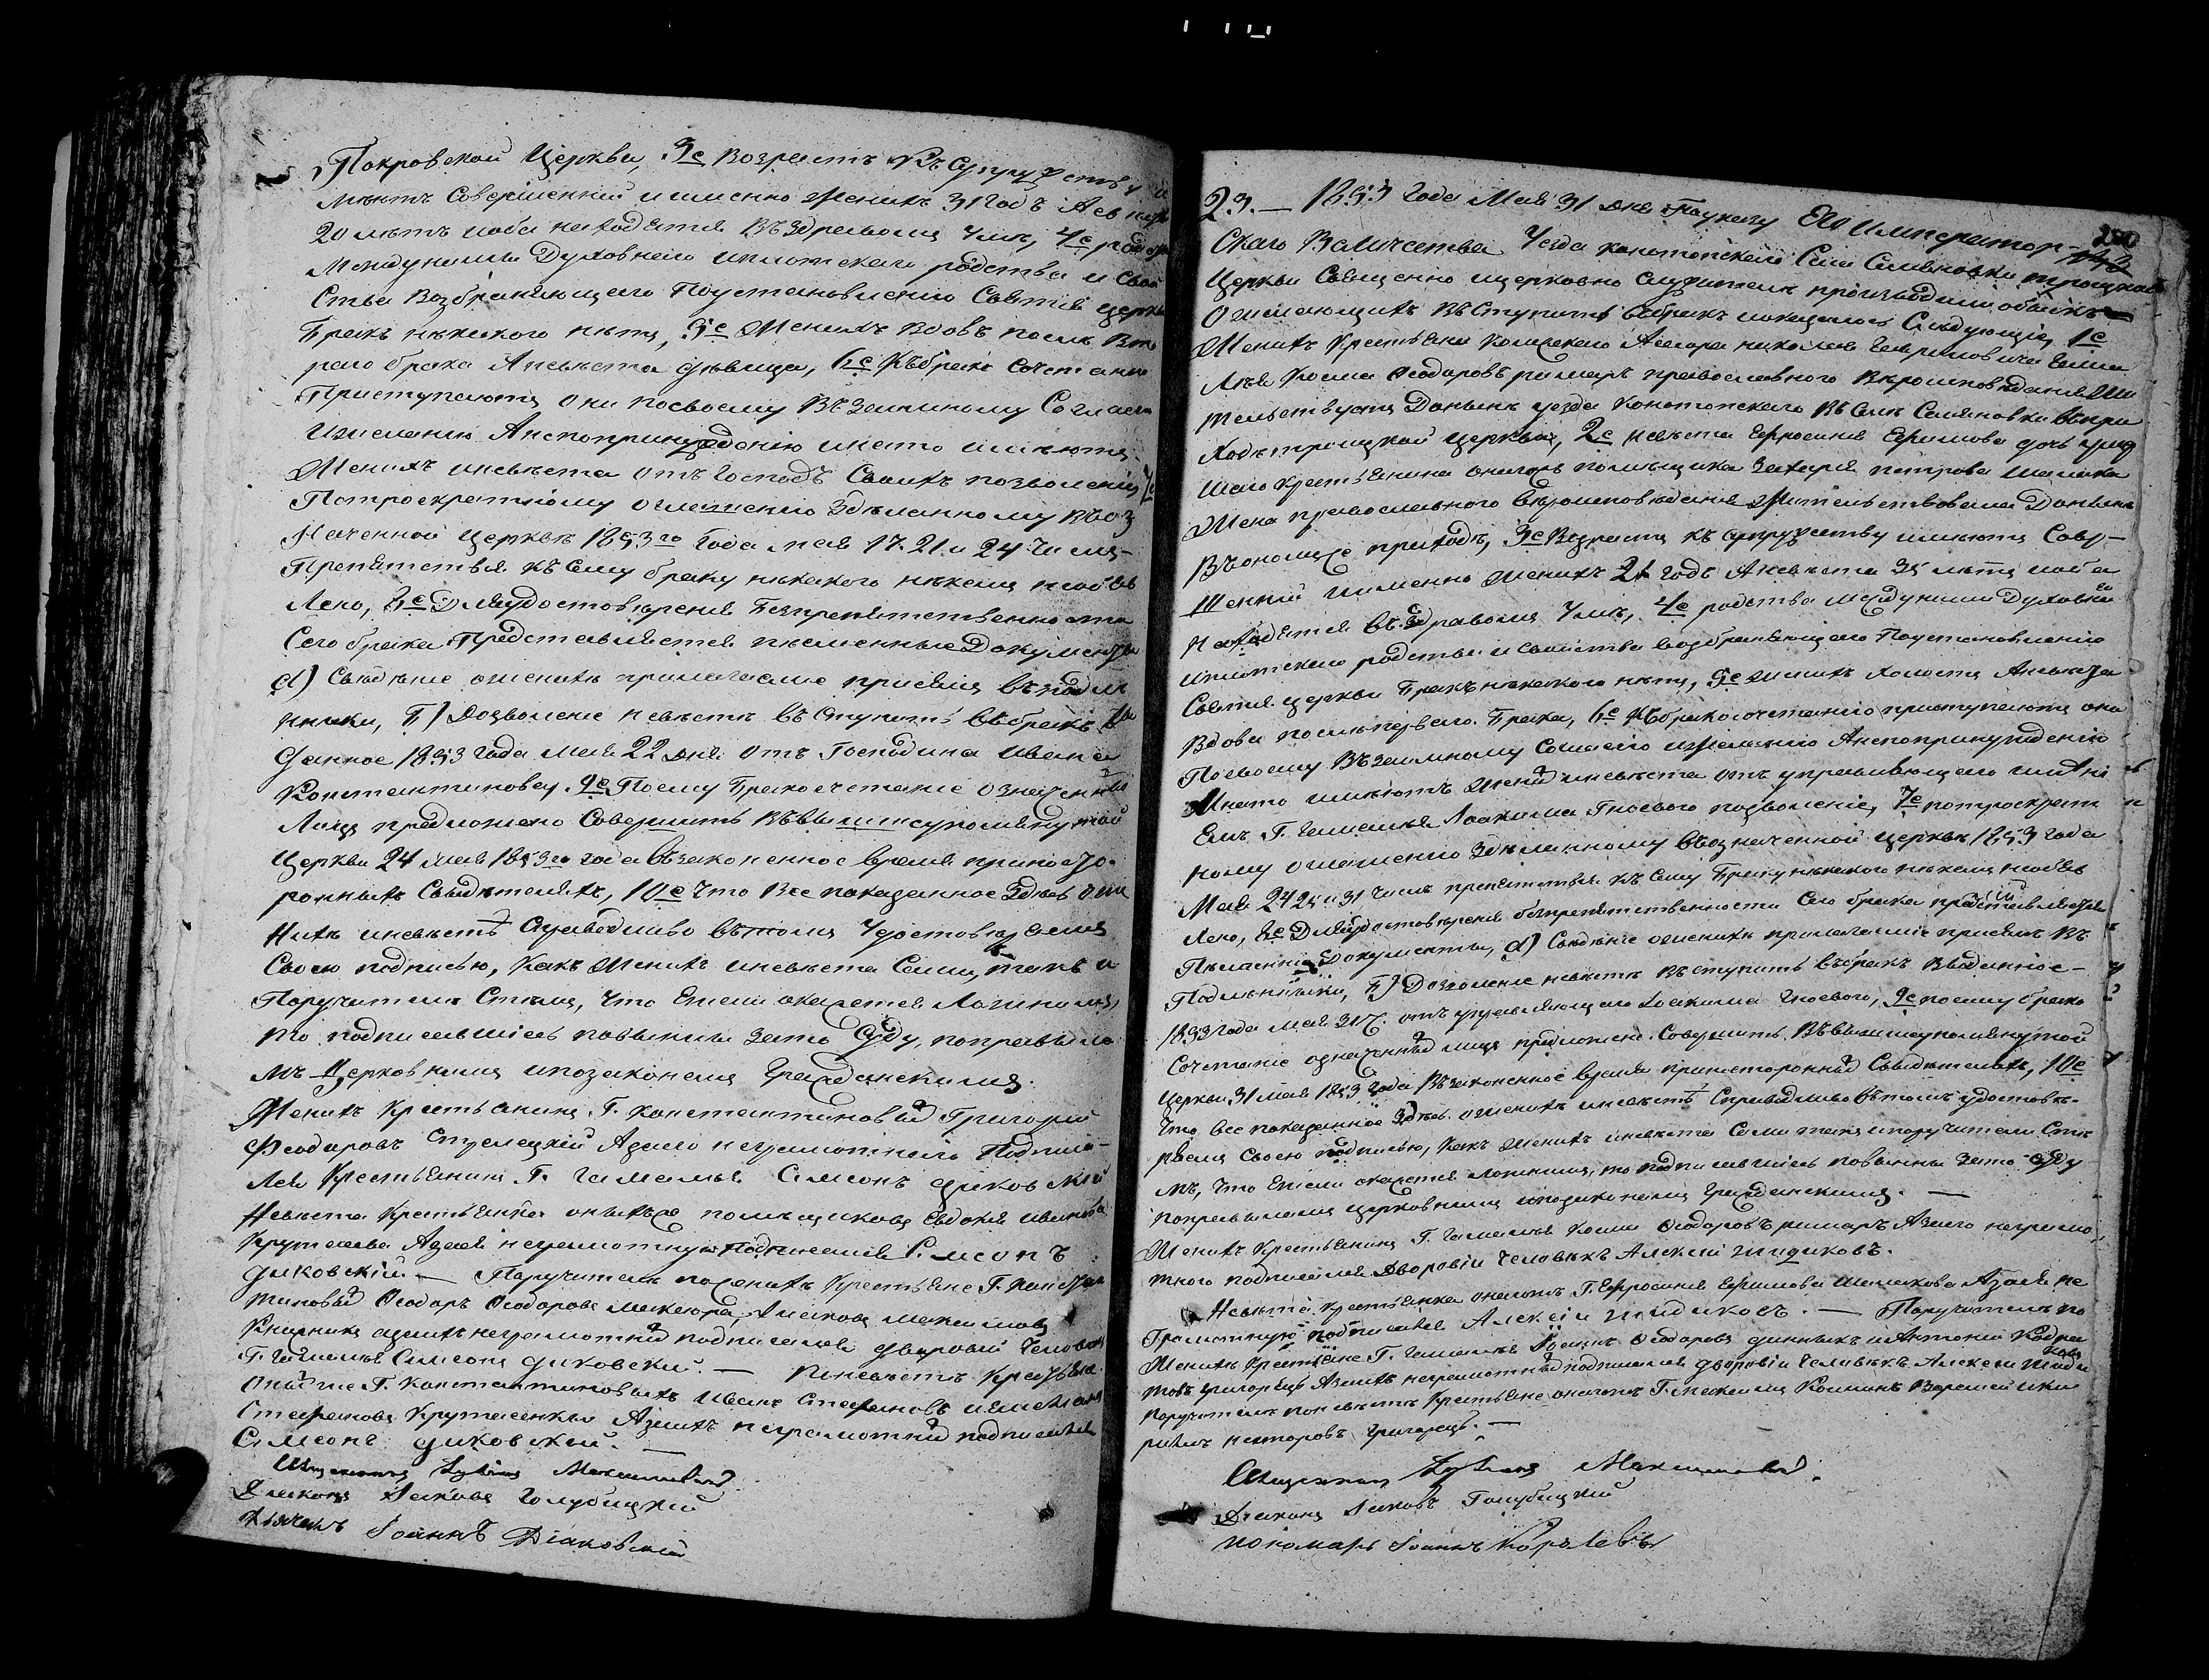 Покровской Церкви, 3е возрастъ къ супружеству и
мѣютъ совершенній и именно женихъ 31 годъ А невѣста
20 лѣтъ и оба находятся въ здравомъ умѣ, 4е родства
Между ними Духовнаго и плотскаго родства и свой
Ства возбраняющаго По установленію Святія церкви
Бракъ никакого нѣтъ, 5е Женихъ вдовъ послѣ вто
раго брака А невѣста дѣвица, 6е Къ бракосочетанію
Приступаютъ они по своему взаимному согласію
И желанію А не по принужденію и на то имѣютъ
Женихъ и невѣста отъ Господъ своихъ позволеніе, 7е
По троекратному оглашенію здѣланному въ оз
наченной церквѣ 1853го года мая 17. 21. и 24 числъ
Препятствія къ сему браку никакого никемъ необъяв
лено, 8е Для удостовѣренія безпрепятственности
Сего брака представляется письменные документы
А) Свѣдѣніе о женихѣ прилагаемое при семъ въ подлин
никѣ, Б) Дозволеніе невѣстѣ вступить въ бракъ вы
данное 1853 года мая 22 дня отъ Господина Ивана
Константиновича. 9е По сему бракосочетаніе означенныхъ
Лицъ предложено совершить въ вышеупомянутой
Церкви 24 мая 1853го года въ законенное время при посто
ронныхъ свидѣтеляхъ, 10е Что все показанное здѣсь о же
нихѣ и невѣстѣ справедливо въ томъ удостовѣряемъ
Своею подписью, какъ женихъ и невѣста сами, такъ и
Поручители стемъ, что ежели окажется ложнимъ,
то подписавшіесь повынны зато суду, по правыла
мъ Церковнимъ и по законамъ гражданскимъ.
Женихъ крестьянинъ Г. Константиновыхъ Григорій
Феодоровъ Стрелецкій А за его неграмотнаго подписа-
лся крестьянинъ Г. Гамалѣя Симеонъ Диковскій
Невѣста крестьянка онихъже помѣщиковъ Евдокія Иванова
Крутасева А за ея неграмотную подписался Симеонъ
Диковскій. — Поручители по женихѣ крестьяне Г. Констан
тиновыхъ Феодоръ Феодоровъ
подписался дворовій человѣкъ
Г. Гамалѣя Симеонъ Диковскій. — По невѣстѣ крестьяне
онихже Г. Константиновыхъ Иванъ Стефановъ
Стефановъ А за ихъ неграмотныхъ подписался
Симеонъ Диковскій. —
Священникъ Максимовичъ.
Діаконъ Іаковъ Голубицкій
Дьячекъ Іоаннъ Діаковскій
23. — 1853 года Мая 31 дня По указу Его Император-
скаго Величества Уезда Конотопскаго Села Семяновки троицкой
Церкви Священно и церковно служители производили обыскъ о
О желающихъ вступить въ бракъ и оказалось следующіе, 1е
Женихъ крестьянинъ Николая Гавриловича Гама
лѣя Косма Феодоровъ римаръ православного вѣроисповеданія жи
тельствуетъ Доныне уезда Конотопскаго въ селѣ Семяновки въ при
ходѣ троицкой церквы, 2е невѣста Ефросинія Ефимова дочь умер
шаго крестьянина оногожъ помѣщика Захарія Петрова
Жена православного вѣроисповѣданія жительствовала Доныне
Въ ономже приходѣ, 3е Возрастъ къ супружеству имѣютъ совер-
шенній и именно женихъ 21 годъ А невѣста 35 лѣтъ и оба
находятся въ здравомъ умѣ, 4е родства между ними Духовнаго
и плотскаго родства и свойства возбраняющаго По установленію
Святія церкви бракъ никакого нѣтъ, 5е Женихъ холостъ А невѣста
вдова послѣ перваго брака, 6е Къ бракосочетанію приступаютъ они
По своему взаимному согласію и желанію А не по принужденію
И на то имѣютъ женихъ и невѣста отъ управляющаго имѣні
емъ Г. Гамалѣя Іоакима Гноевого позволеніе, 7е по троекрат
ному оглашенію здѣланному въ означенной церквѣ 1853 года
Мая 24 25 и 31 числъ препятствія къ сему браку никакого никемъ необъяв
лено, 8е Для удостовѣренія безпрепятственности сего брака представляется
Письменніе документы, А) Свѣдѣніе о женихѣ прилагаемое при семъ въ
Подлинникѣ, Б) Дозволеніе невѣстѣ вступить въ бракъ выданное-
1853 года мая 31 отъ управляющаго Іоакима Гноевого, 9е по сему брако
сочетаніе означенныхъ лицъ предложено совершить въ вышеупомянутой
Церкви 31 мая 1853 года въ законенное время при постороннихъ свидѣтеляхъ, 10е
Что все показанное здѣсь о женихѣ и невѣстѣ справедливо въ томъ удостовѣ-
ряемъ своею подписью, какъ женихъ и невѣста сами такъ и поручители стѣ
мъ, что ежели окажется ложнимъ, то подписавшіесь повынны зато суду
по правыламъ церковнимъ и по законамъ гражданскимъ. —
Женихъ крестьянинъ Г. Гамалѣя Косма Феодоровъ римаръ А за его неграмо
тного подписался дворовій человѣкъ Алексій Жидиковъ.
Невѣста крестьянка оногожъ Г. Ефросинія Ефимова А за ея не
грамотную подписался Алексій Жидиковъ. — Поручители по
Женихѣ крестьяне Г. Гамалѣя Феодоровъ и Антоній
Григорьевъ А за ихъ неграмотныхъ подписался дворовій человѣкъ Алексій Жиди
ковъ
Поручители по невѣстѣ крестьяне оногожъ Г.
Несторовъ Григорьевъ. —
Священникъ Максимовичъ.
Діаконъ Іаковъ Голубицкій
Пономарь Іоаннъ